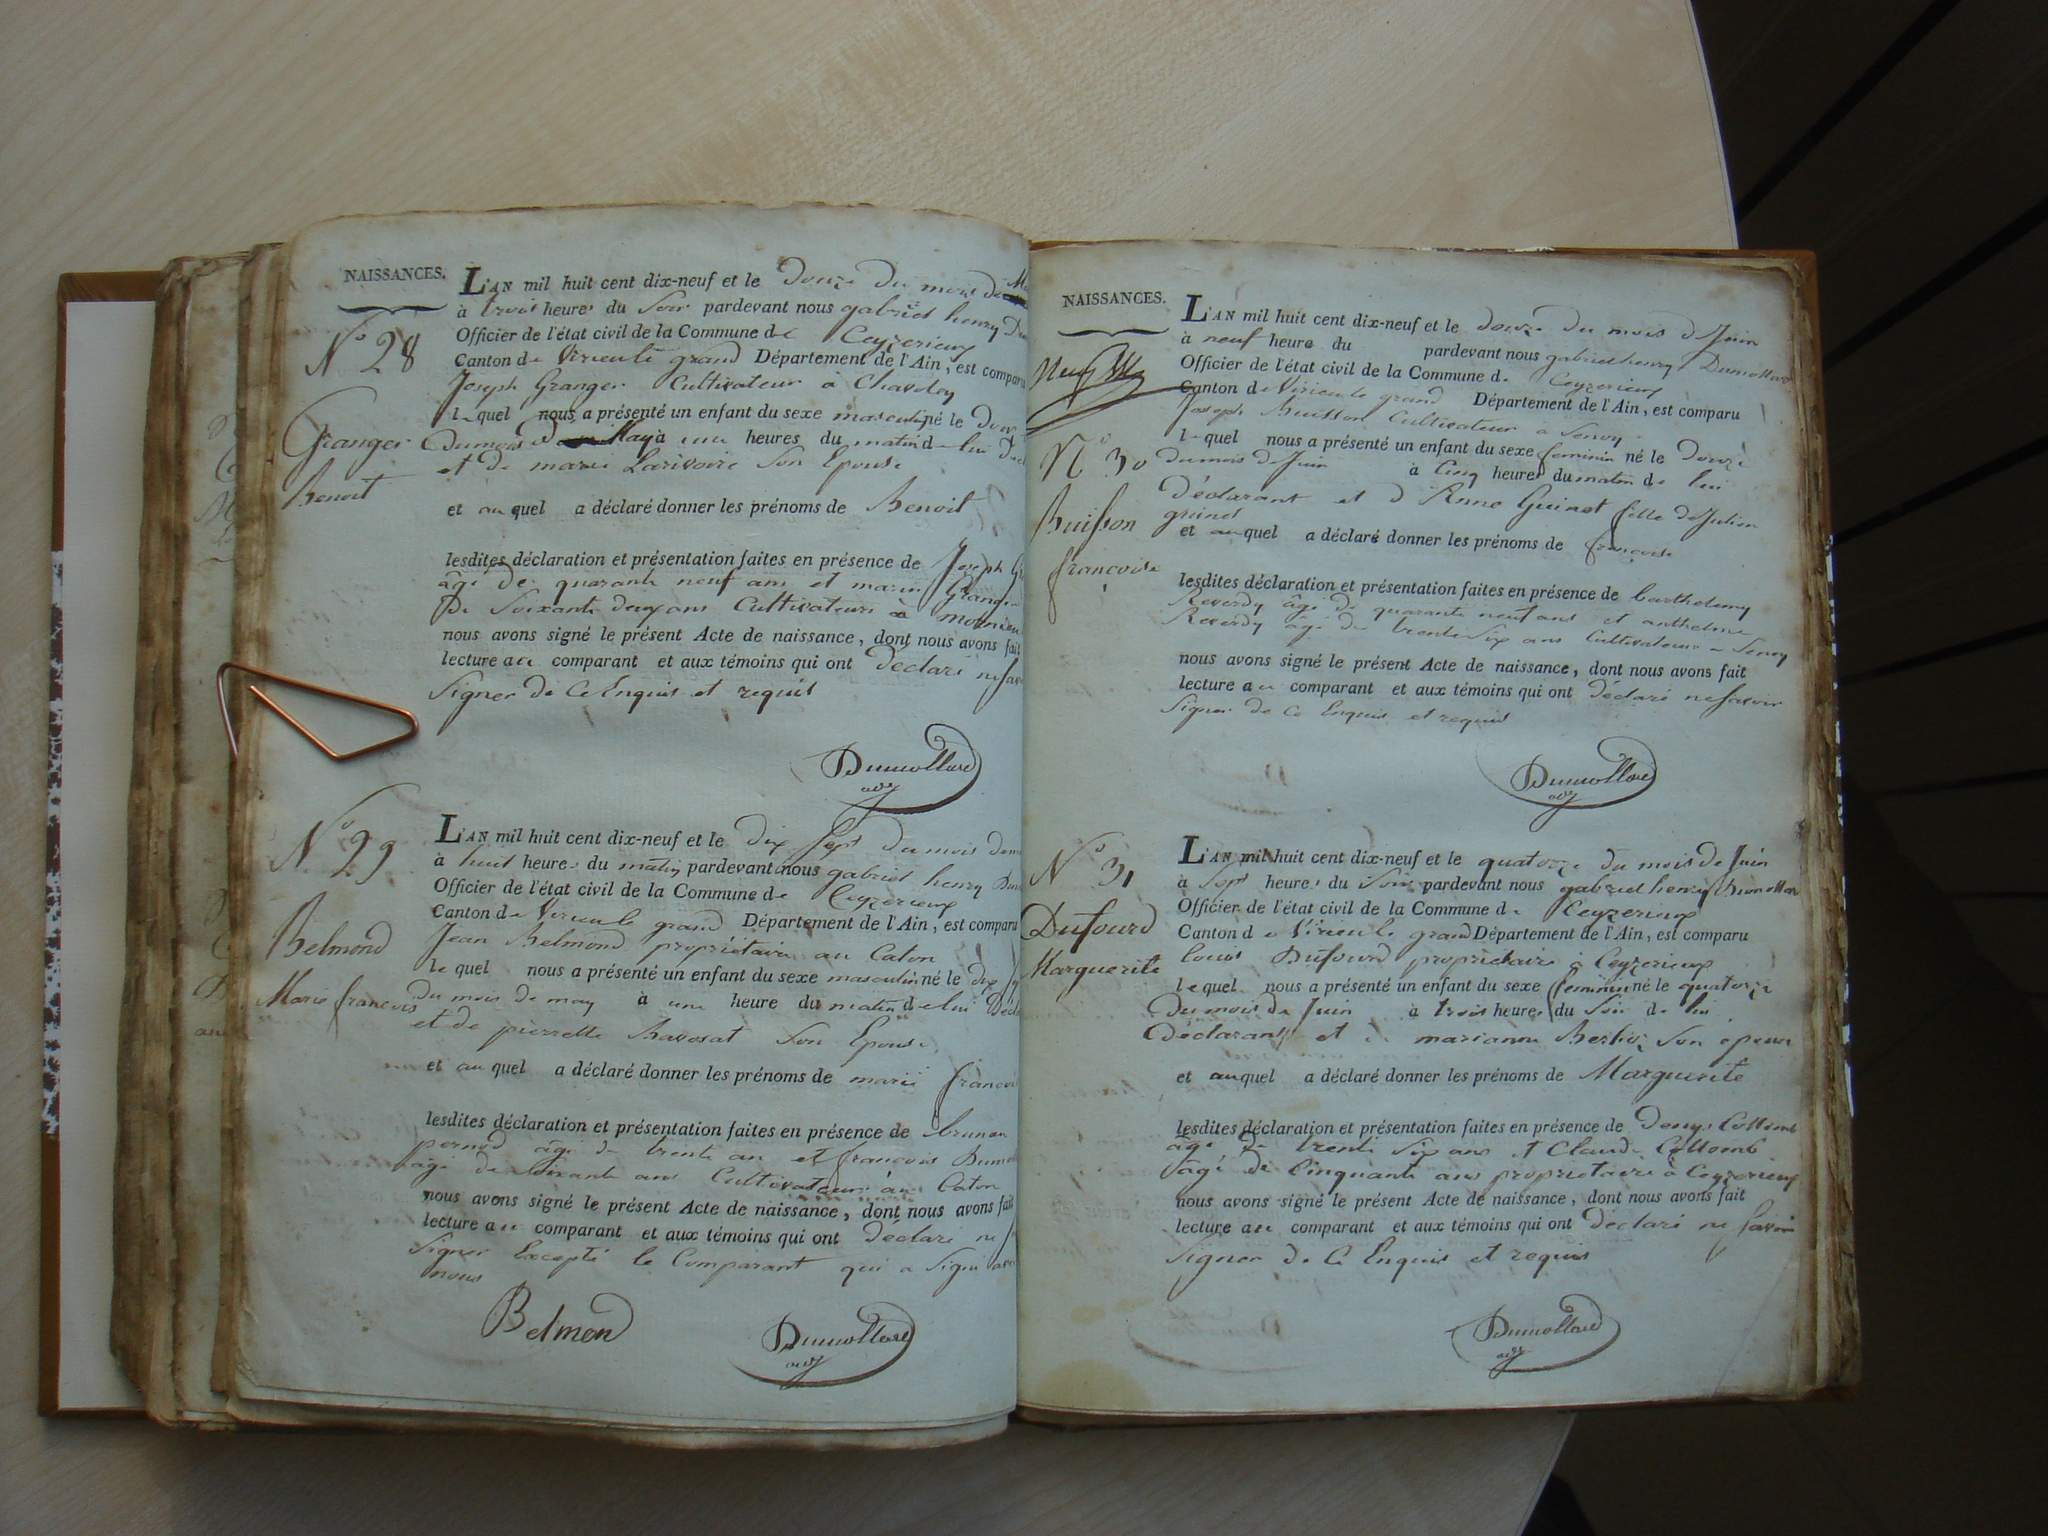 NAISSANCES.
N° 28
Granger
Benoit
L'AN mil huit cent dix-neuf et le Douze du mois de
à trois heures du Soir pardevant nous gabriel henry
Officier de l'état civil de la Commune de Ceyzerieux
Canton de Virieu le grand Département de l'Ain, est comparu
Joseph Granger Cultivateur à
lequel nous a présenté un enfant du sexe masculin né le
Dumois De May à une heures du matin de lui
et de marie Larivoire Son Epouse
et auquel a déclaré donner les prénoms de Benoit
lesdites déclaration et présentation faites en présence de Joseph
âgé de quarante neuf ans et marin Granger
De Soixante deux ans Cultivateurs à
nous avons signé le présent Acte de naissance, dont nous avons fait
lecture au comparant et aux témoins qui ont Déclaré ne
Signer de Ce Enquis et requis
Dumollard
N° 29
Belmond
Marie françois
L'AN mil huit cent dix-neuf et le dix sept du mois
à huit heures du matin pardevant nous gabriel henry
Officier de l'état civil de la Commune de Ceyzerieux
Canton de Virieu le grand Département de l'Ain, est comparu
Jean Belmond propriétaire au Caton
lequel nous a présenté un enfant du sexe masculin né le dix
du mois de may à une heure du matin de lui
et de pierrette Ravosat Son Epouse
et auquel a déclaré donner les prénoms de marie
lesdites déclaration et présentation faites en présence de
âgé de trente an et françois
âgé de soixante ans Cultivateurs au Caton
nous avons signé le présent Acte de naissance, dont nous avons fait
lecture au comparant et aux témoins qui ont Déclaré ne
Signer Excepté le Comparant qui a Signé
nous
Belmond
Dumollard
NAISSANCES.
N° 30
Buisson
françoise
L'AN mil huit cent dix-neuf et le douze du mois d Juin
à neuf heure du pardevant nous gabriel henry Dumollard
Officier de l'état civil de la Commune de Ceyzerieux
Canton de Virieu le grand Département de l'Ain, est comparu
Joseph Buisson Cultivateur à Senoy
lequel nous a présenté un enfant du sexe feminin né le Douze
du mois de Juin à Cinq heures du matin de lui
Déclarant et d Anne Guinet fille de Julien
guinet
et auquel a déclaré donner les prénoms de françoise
lesdites déclaration et présentation faites en présence de barthelemy
Reverdy âgé de quarante neuf ans et anthelme
Reverdy âgé de trente Six ans Cultivateurs a Senoy
nous avons signé le présent Acte de naissance, dont nous avons fait
lecture au comparant et aux témoins qui ont déclaré ne savoir
Signer de Ce Enquis et requis
Dumollard
N° 31
Dufourd
Marguerite
L'AN mil huit cent dix-neuf et le quatorze du mois de Juin
à Sept heures du Soir pardevant nous gabriel henry Dumollar
Officier de l'état civil de la Commune de Ceyzerieux
Canton de Virieu le grand Département de l'Ain, est comparu
louis Dufourd propriétaire à Ceyzerieux
lequel nous a présenté un enfant du sexe feminin né le quatorze
Du mois de Juin à trois heures du Soir de lui
Déclarant et de marianne Berlioz Son épouse
et auquel a déclaré donner les prénoms de Marguerite
lesdites déclaration et présentation faites en présence de Denys Collomb
âgé de trente six ans et Claude Collomb
âgé de Cinquante ans propriétaires à Ceyzerieux
nous avons signé le présent Acte de naissance, dont nous avons fait
lecture au comparant et aux témoins qui ont déclaré ne savoir
Signer de Ce Enquis et requis
Dumollard